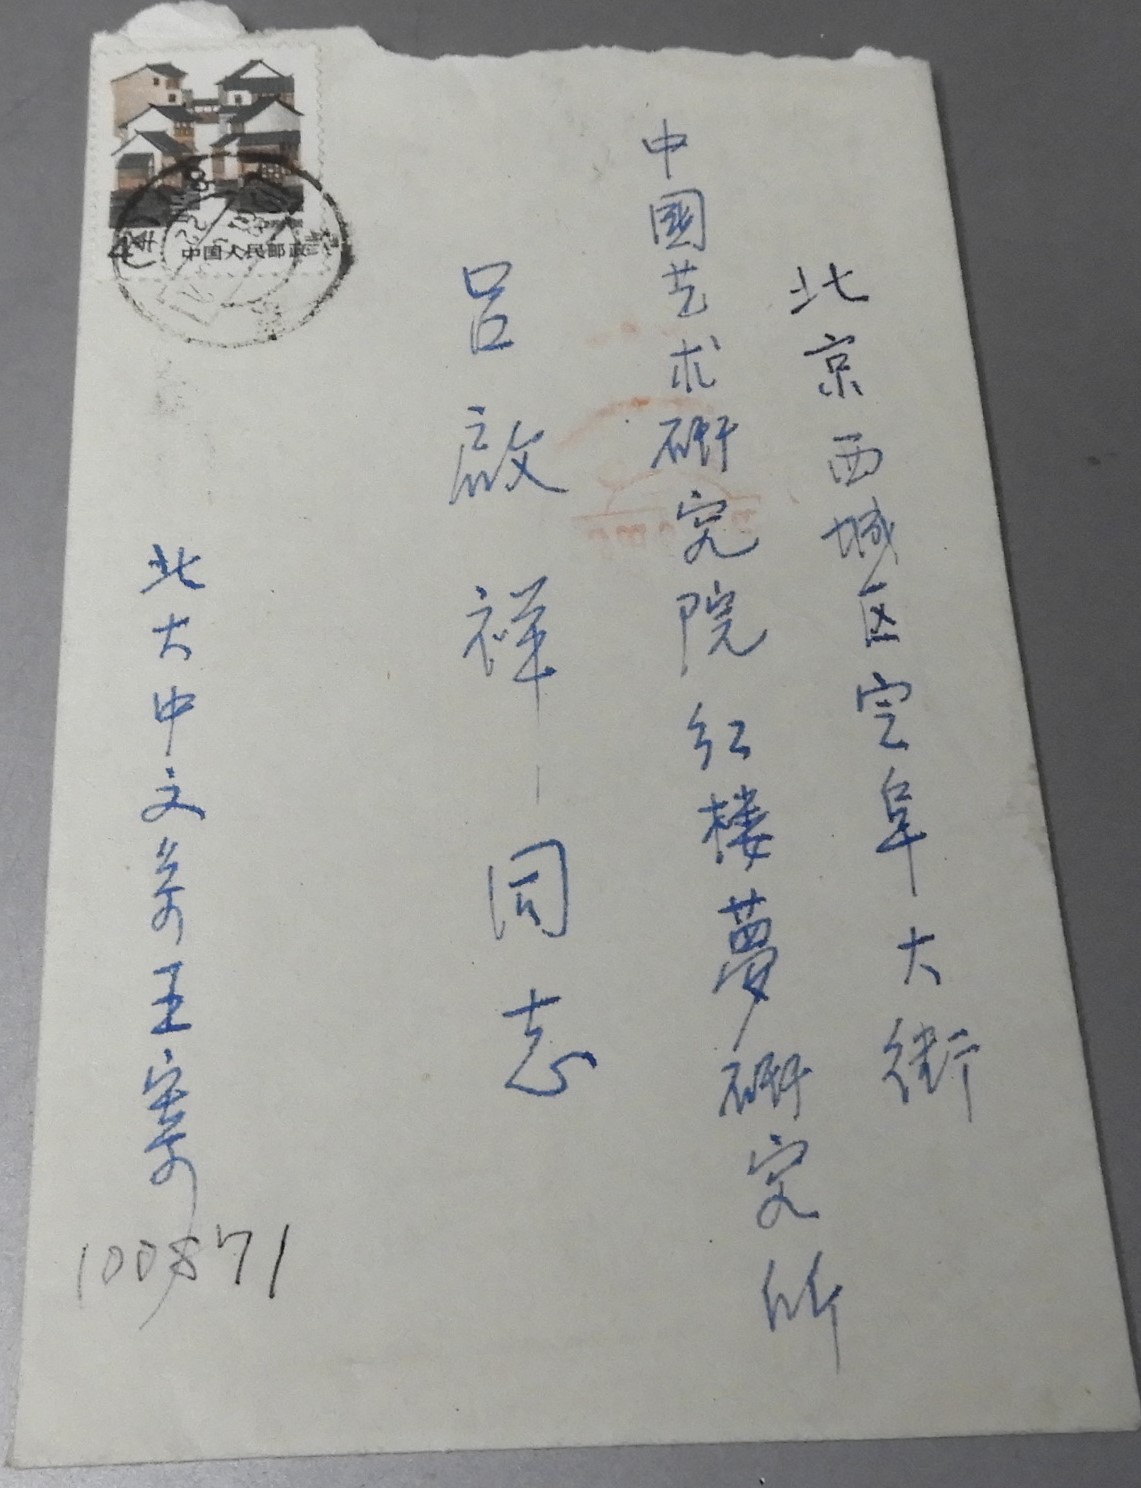 北京西城区定阜大街
中国艺术研究院红楼夢研究所
吕啟祥同志
北大中文系王寄
100871
中国人民邮政